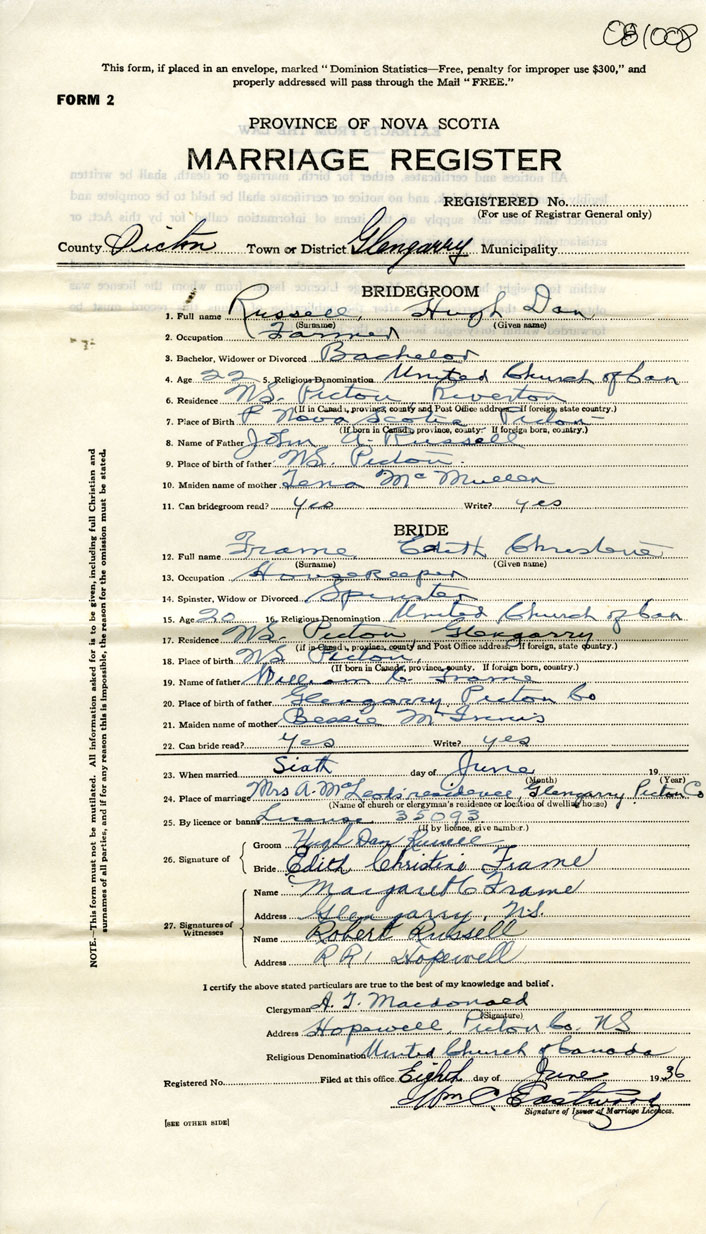 081008
This form, if placed in an envelope, marked "Dominion Statistics—Free, penalty for improper use $300," and
properly addressed will pass through the Mail "FREE."
FORM 2
PROVINCE OF NOVA SCOTIA
MARRIAGE REGISTER
REGISTERED No.
(For use of Registrar General only)
County Pictou Town or District Glengarry Municipality
BRIDEGROOM
1. Full name Russell, Hugh Dan
(Surname) (Given name)
2. Occupation Farmer
3. Bachelor, Widower or Divorced Bachelor
4. Age 22 5. Religious Denomination United Church of Can
6. Residence NS. Pictou Riverton
(If in Canada, province, county and Post Office address. If foreign, state country.)
7. Place of Birth P Nova Scotia Pictou
(If born in Canada, province, county. If foreign born, country.)
8. Name of Father John A. Russell
9. Place of birth of father NS. Pictou
10. Maiden name of mother Tena McMullen
11. Can bridegroom read? yes Write? yes
BRIDE
12. Full name Frame, Edith Christine
(Surname) (Given name)
13. Occupation Housekeeper
14. Spinster, Widow or Divorced Spinster
15. Age 20 16. Religious Denomination United Church of Can
17. Residence NS. Pictou Glengarry
(If in Canada, province, county and Post Office address. If foreign, state country.)
18. Place of birth NS Pictou,
(If born in Canada, province, county. If foreign born, country.)
19. Name of father William C. Frame
20. Place of birth of father Glengarry Pictou Co
21. Maiden name of mother Bessie McInnis
22. Can bride read? Yes Write? yes
23. When married Sixth day of June 19
(Month) (Year)
24. Place of marriage Mrs A. McLeods residence, Glengarry Pictou Co
(Name of church or clergyman's residence or location of dwelling house)
25. By licence or banns License 35093
(If by licence, give number.)
26. Signature of
Groom Hugh Dan Russell
Bride Edith Christine Frame
27. Signatures of Witnesses
Name Margaret C Frame
Address Glengarry, N.S.
Name Robert Russell
Address R R 1 Hopewell
I certify the above stated particulars are true to the best of my knowledge and belief.
Clergyman Macdonald
(Signature)
Address Hopewell, Pictou Co. NS
Religious Denomination United Church of Canada
Registered No. Filed at this office Eighth day of June 1936
Wm C. Eastwood
Signature of Issuer of Marriage Licences.
[SEE OTHER SIDE]
NOTE.—This form must not be mutilated. All information asked for is to be given, including full Christian and
surnames of all parties, and if for any reason this is impossible, the reason for the omission must be stated.